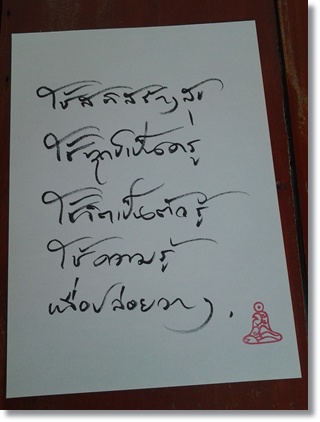 ใช้สติสร้างสุข
ใช้ทุกข์เป็นครู
ใช้จิตเป็นตัวรู้
ใช้ความรู้
เพื่อปล่อยวาง.